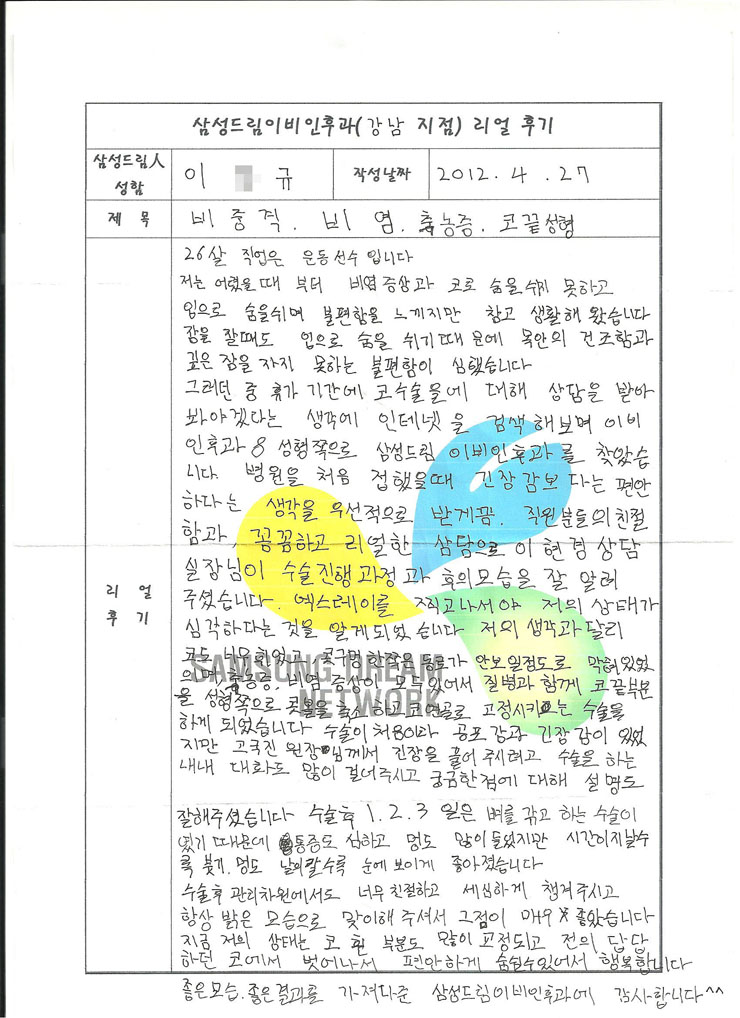 삼성드림이비인후과(강남 지점) 리얼 후기
삼성드림人 성함
이 규
작성날짜
2012. 4. 27
제 목
비중격. 비염. 축농증. 코끝성형
리 얼 후 기
26살 직업은 운동선수 입니다
저는 어렸을때 부터 비염증상과 코로 숨을쉬지 못하고
입으로 숨을쉬며 불편함을 느끼지만 참고 생활해 왔습니다
잠을 잘때도 입으로 숨을 쉬기때문에 목안의 건조함과
깊은 잠을 자지 못하는 불편함이 심했습니다
그러던 중 휴가 기간에 코수술을에 대해 상담을 받아
봐야겠다는 생각에 인터넷을 검색해보며 이비
인후과 & 성형쪽으로 삼성드림 이비인후과를 찾았습
니다. 병원을 처음 접했을때 긴장감보다는 편안
하다는 생각을 우선적으로 받게끔. 직원분들의 친절
함과, 꼼꼼하고 리얼한 상담으로 이현경상담
실장님이 수술진행과정과 후의모습을 잘 알려
주셨습니다. 엑스레이를 찍고나서야 저의 상태가
심각하다는 것을 알게되었습니다 저의 생각과달리
코도 너무휘었고 콧구멍한쪽은 통로가 안보일정도로 막혀있었
으며 축농증, 비염 증상이 모두있어서 질병과 함께 코끝부분
을 성형쪽으로 콧볼을 축소하고 코연골로 고정시키는 수술을
하게 되었습니다 수술이 처음이라 공포감과 긴장감이 있었
지만 고국진 원장님께서 긴장을 풀어주시려고 수술을 하는
내내 대화도 많이 걸어주시고 궁금한점에 대해 설명도
SAMSUNG DREAM
NETWORK
잘해주셨습니다 수술후 1.2.3 일은 뼈를 깎고 하는 수술이
였기 때문에 통증도 심하고 멍도 많이들었지만 시간이지날수
록 붓기.멍도 날이갈수록 눈에 보이게 좋아졌습니다
수술후 관리차원에서도 너무친절하고 세심하게 챙겨주시고
항상 밝은 모습으로 맞이해 주셔서 그점이 매우 좋았습니다
지금 저의 상태는 코 휜 부분도 많이 교정되고 전의 답답
하던 코에서 벗어나서 편안하게 숨쉴수있어서 행복합니다
좋은모습.좋은결과를 가져다준 삼성드림이비인후과에 감사합니다^^